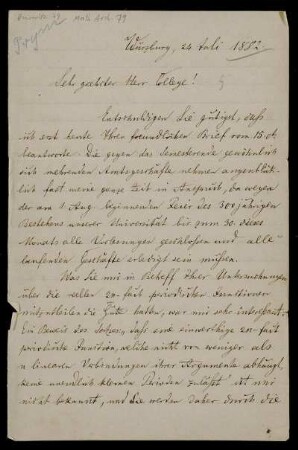 Math. Arch. 79
Prym
Würzburg, 24 Juli 1882
Sehr geehrter Herr College!
Entschuldigen Sie gütigst, dass
ich erst heute Ihren freundlichen Brief vom 15. d.
beantworte. Die gegen das Semesterende gewöhnlich
sich mehrenden Amtsgeschäfte nehmen augenblick
lich fast meine ganze Zeit in Anspruch, da wegen
der am 1 Aug. beginnenden Feier des 300 jährigen
Bestehens unserer Universität bis zum 30. dieses
Monats alle Vorlesungen geschlossen und alle
laufenden Geschäfte erledigt sein müssen.
Was Sie mir in Betreff Ihrer Untersuchungen
über die 2n-fach periodischer Functionen
mitzutheilen die Güte hatten, war mir sehr interessant.
Ein Beweis des Satzes, dass eine einwerthige 2n-fach
periodische Function, welche nicht von weniger als
n linearen Verbindungen ihrer Argumente abhängt,
keine unendlich kleinen Perioden zulässt ist mir
nicht bekannt, und Sie werden daher durch die